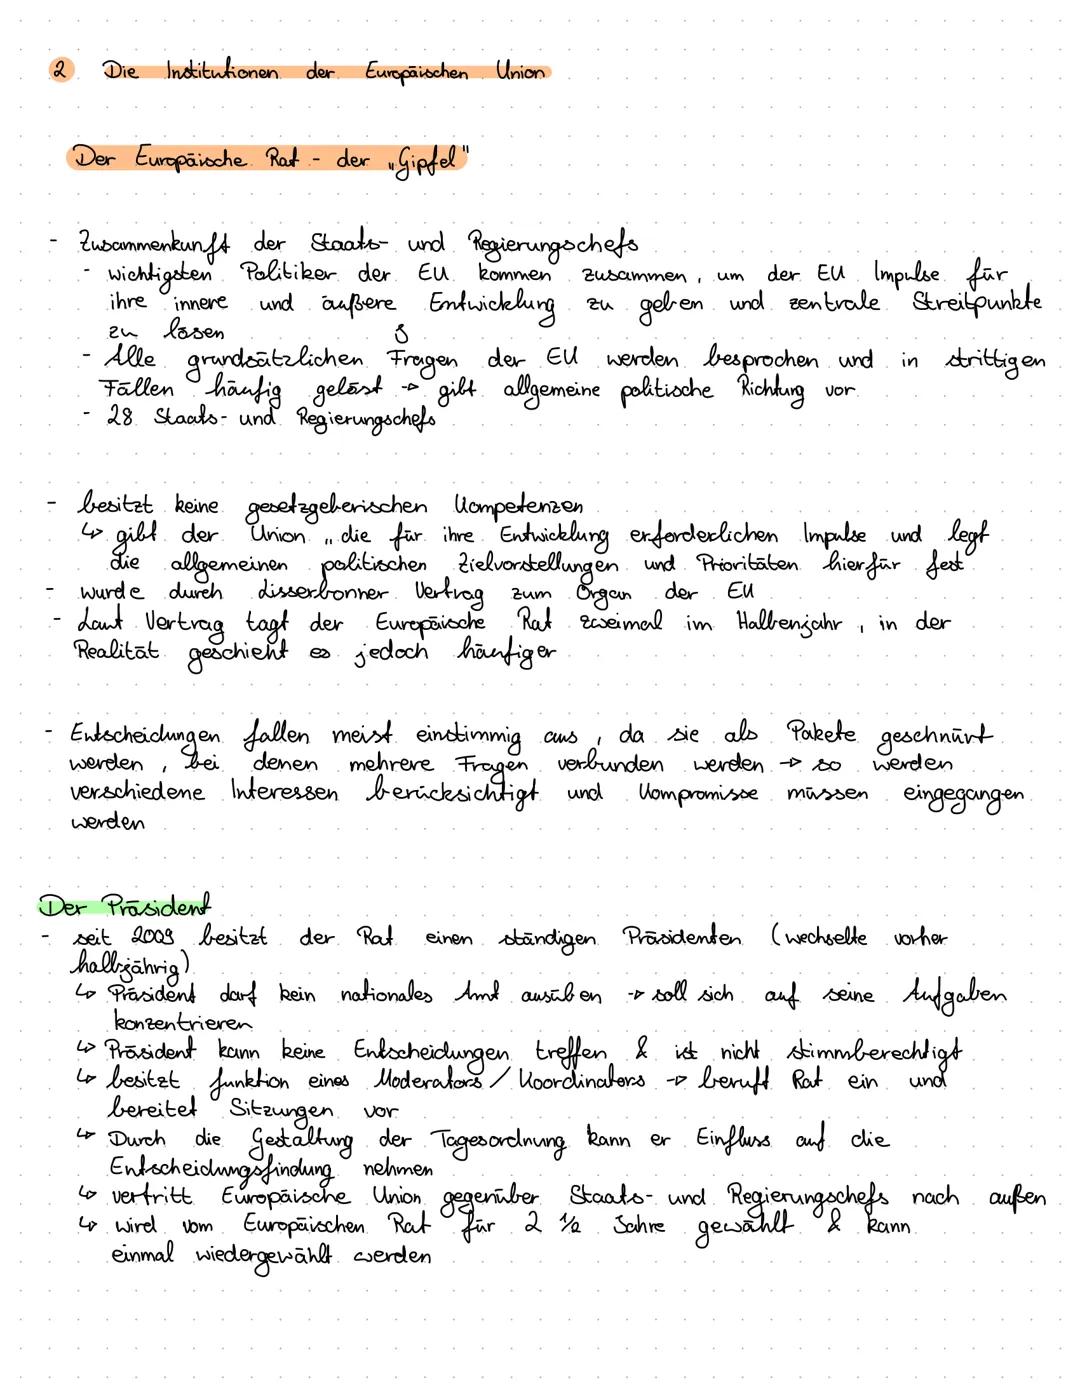 2 Die Institutionen der Europäischen Union
Der Europäische Rat - der „Gipfel"
- Zusammenkunft der Staats- und Regierungschefs
- wichtigsten Politiker der EU kommen zusammen, um der EU Impulse für
ihre innere und äußere Entwicklung zu geben und zentrale Streitpunkte
zu lösen
- Alle grundsätzlichen Fragen der EU werden besprochen und in strittigen
Fällen häufig gelöst → gibt allgemeine politische Richtung vor
- 28 Staats- und Regierungschefs
- besitzt keine gesetzgeberischen Kompetenzen
↳ gibt der Union „die für ihre Entwicklung erforderlichen Impulse und legt
die allgemeinen politischen Zielvorstellungen und Prioritäten hierfür fest
- wurde durch Lisserbonner Vertrag zum Organ der EU
- Laut Vertrag tagt der Europäische Rat zweimal im Halbenjahr, in der
Realität geschieht es jedoch häufiger
- Entscheidungen fallen meist einstimmig aus, da sie als Pakete geschnürt
werden, bei denen mehrere Fragen verbunden werden → so werden
verschiedene Interessen berücksichtigt und Kompromisse müssen eingegangen
werden
Der Präsident
- seit 2009 besitzt der Rat einen ständigen Präsidenten (wechselte vorher
halbjährig)
↳ Präsident darf kein nationales Amt ausüben → soll sich auf seine Aufgaben
konzentrieren
↳ Präsident kann keine Entscheidungen treffen & ist nicht stimmberechtigt
↳ besitzt funktion eines Moderators / Koordinators → beruft Rat ein und
bereitet Sitzungen vor
↳ Durch die Gestaltung der Tagesordnung kann er Einfluss auf die
Entscheidungsfindung nehmen
↳ vertritt Europäische Union gegenüber Staats- und Regierungschefs nach außen
↳ wird vom Europäischen Rat für 2 1/2 Jahre gewählt & kann
einmal wiedergewählt werden